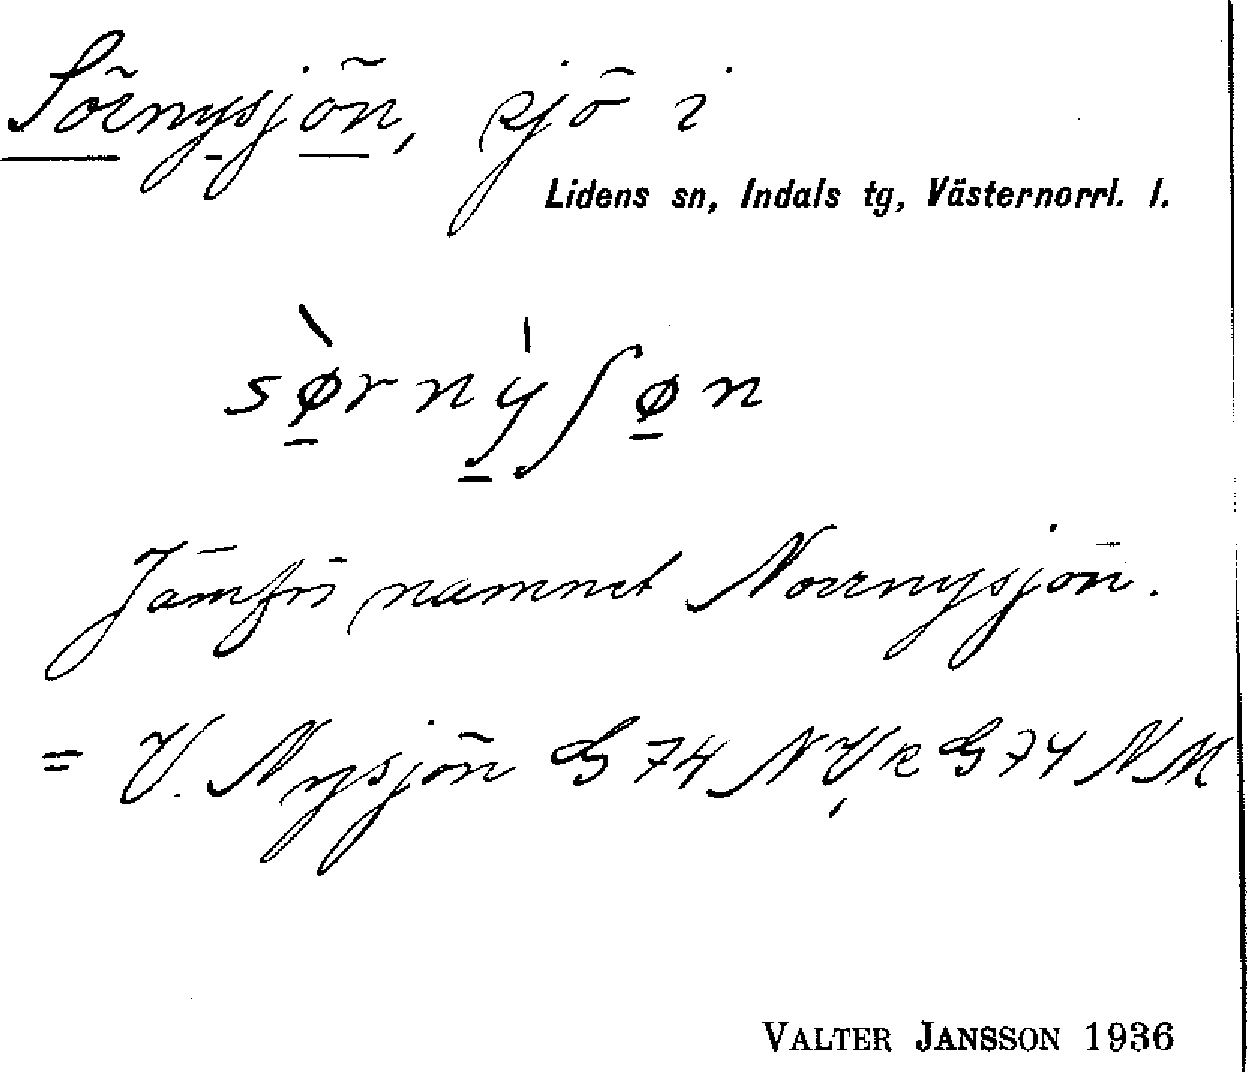 Sörnysjön, sjö i
Lidens sn, Indals tg, Västernorrl. l.
sø̀rnýʃøn
Jämför namnet Norrnysjön.
= V. Nysjön G 74 NV, k G 74 NM
VALTER JANSSON 1936